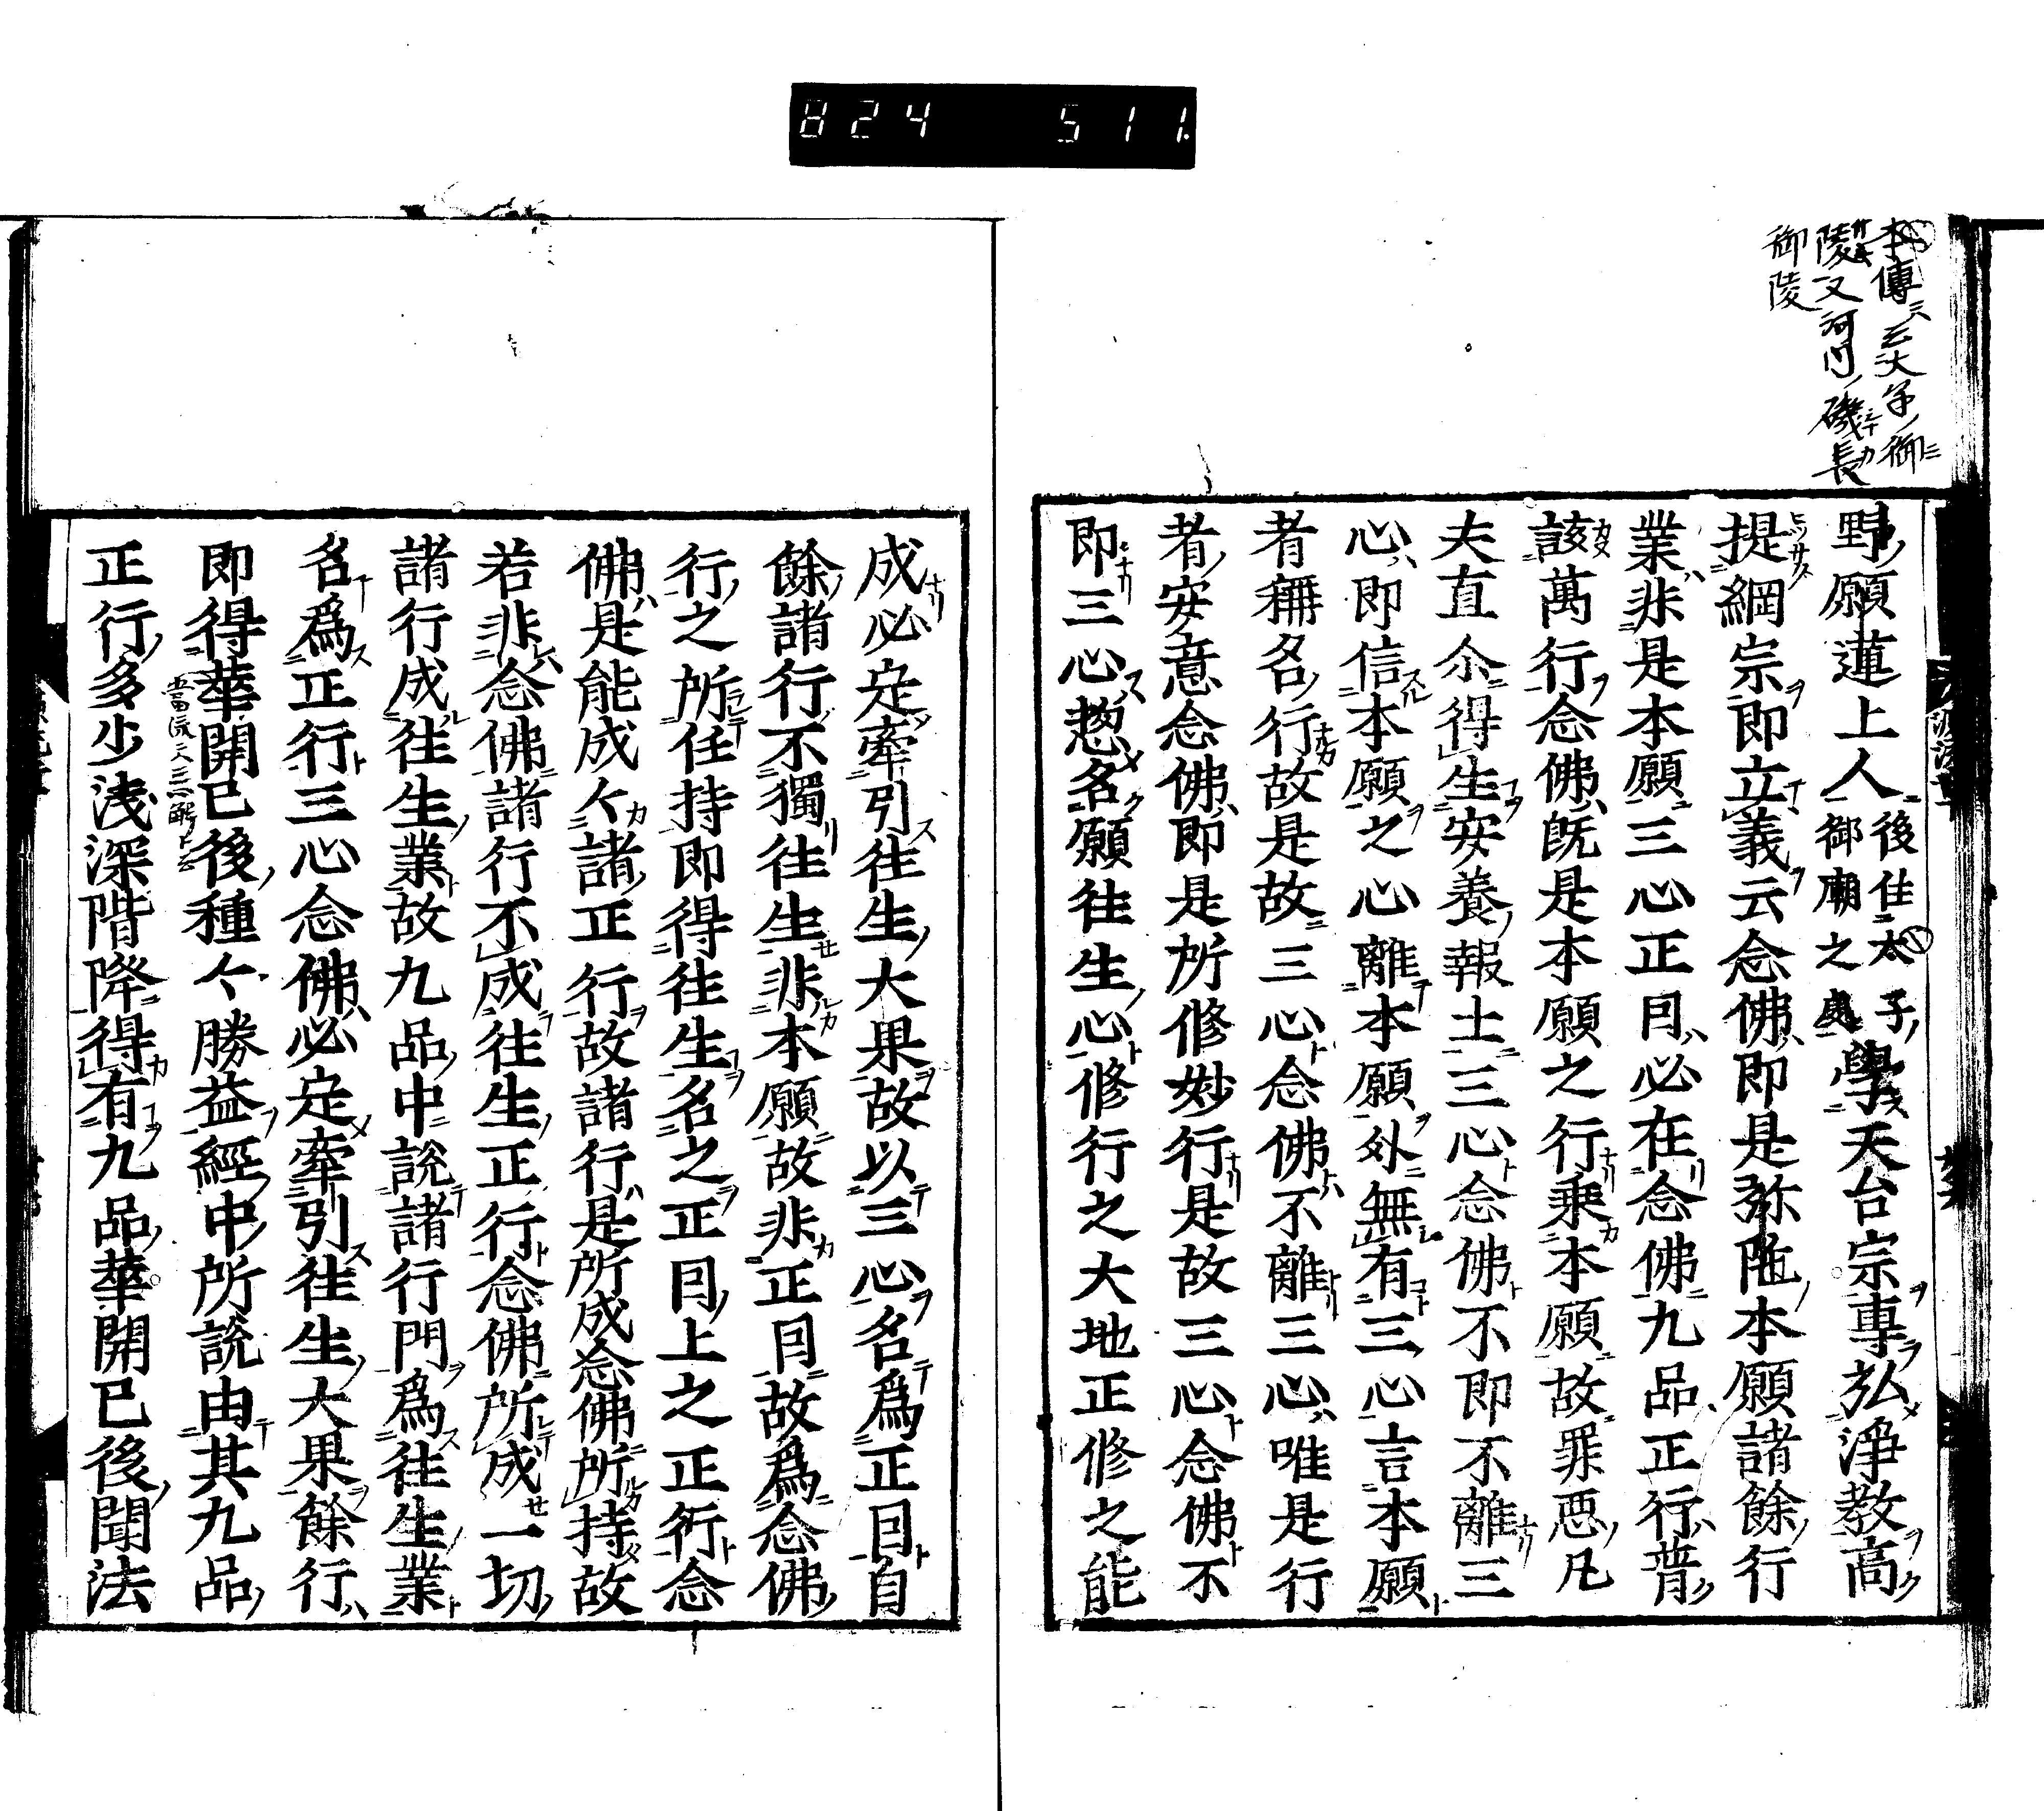 824 511
本傳
御陵
野願蓮上人後住太子御廟之處學天台宗專弘淨教高
提綱宗即立義云念佛即是弥陁本願諸餘行
業非是本願三心正因必在念佛九品正行普
該萬行念佛既是本願之行乘本願故罪惡凡
夫直尒得生安養報土三心念佛不即不離三
心即信本願之心離本願外無有三心言本願
者稱名行故是故三心念佛不離三心唯是行
者安意念佛即是所修妙行是故三心念佛不
即三心惣名願往生心修行之大地正修之能
成必定牽引往生大果故以三心名爲正因自
餘諸行不獨往生非本願故非正因故爲念佛
行之所任持即得往生名之正因上之正行念
佛是能成諸正行故諸行是所成念佛所持故
若非念佛諸行不成往生正行念佛所成一切
諸行成往生業故九品中說諸行門爲往生業
名爲正行三心念佛必定牽引往生大果餘行
即得華開已後種々勝益經中所說由其九品
正行多少浅深階降得有九品華開已後聞法